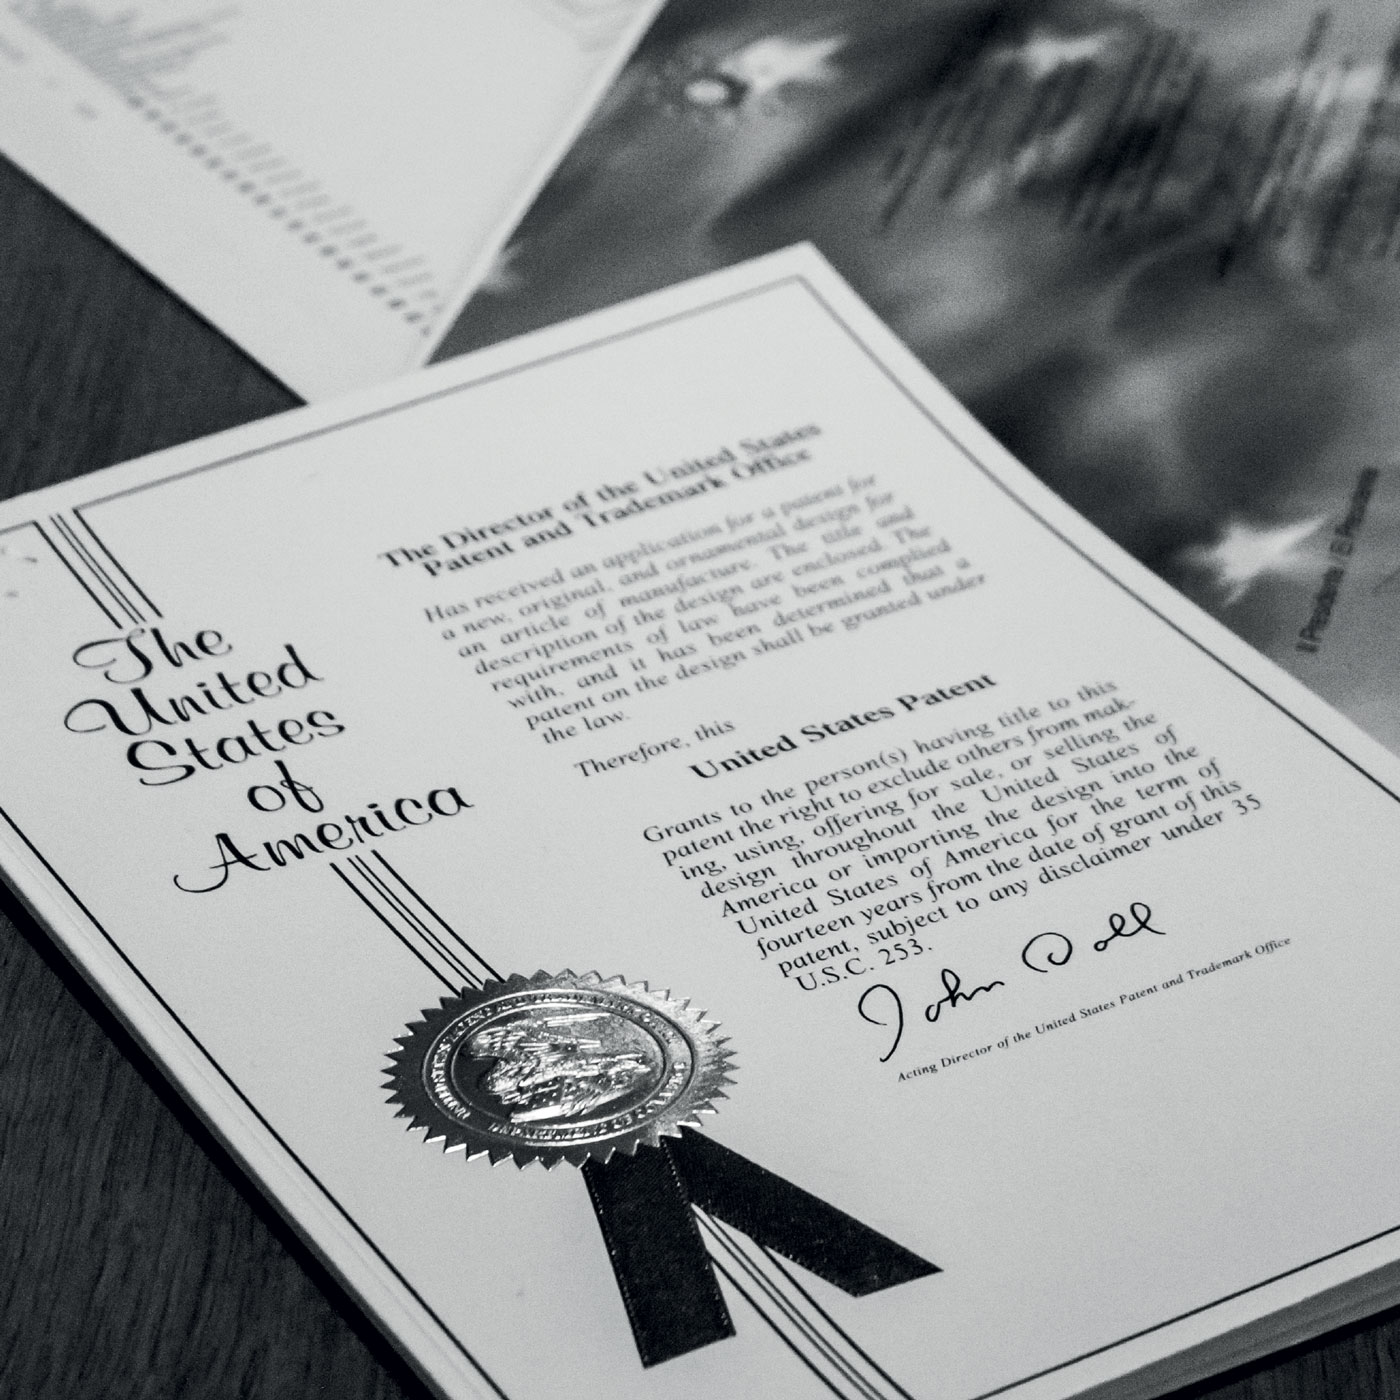 The
United
States
of
America
The Director of the United States
Patent and Trademark Office
Has received an application for a patent for
a new, original, and ornamental design for
an article of manufacture. The title and
description of the design are enclosed. The
requirements of law have been complied
with, and it has been determined that a
patent on the design shall be granted under
the law.
Therefore, this
United States Patent
Grants to the person(s) having title to this
patent the right to exclude others from mak-
ing, using, offering for sale, or selling the
design throughout the United States of
America or importing the design into the
United States of America for the term of
fourteen years from the date of grant of this
patent, subject to any disclaimer under 35
U.S.C. 253.
John Doll
Acting Director of the United States Patent and Trademark Office